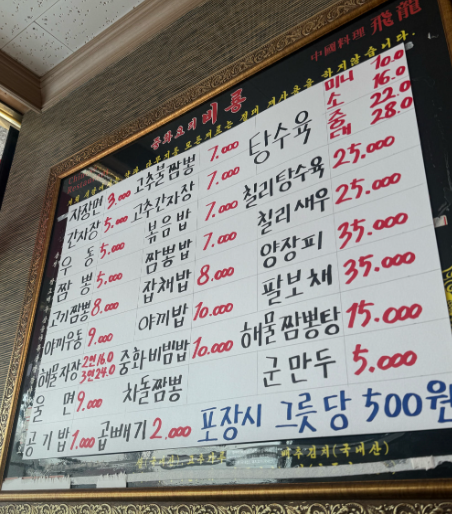 中國料理 飛龍
중화요리 비룡
짜장면 3.000 고추불짬뽕 7.000 탕수육 미니 10.0
소 16.0
중 22.0
대 28.0
간자장 5.000 고추간자장 7.000
우동 5.000 볶음밥 7.000 칠리탕수육 25.000
짬뽕 5.000 짬뽕밥 7.000 칠리새우 25.000
고기짬뽕 8.000 잡채밥 8.000 양장피 35.000
야끼우동 9.000 야끼밥 10.000 팔보채 35.000
해물자장 2인 16.0 3인 24.0 중화비빔밥 10.000 해물짬뽕탕 15.000
울면 9.000 차돌짬뽕 군만두 5.000
공기밥 1.000 곱빼기 2.000 포장시 그릇당 500원
배추김치(국내산)